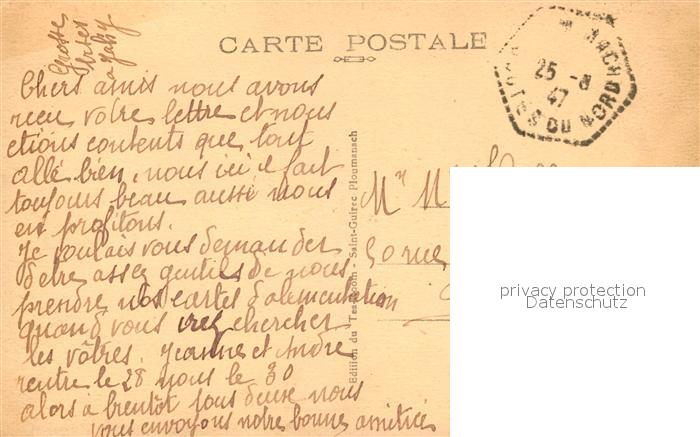 Grosse
bises
a Jacky
CARTE POSTALE
25 -8
47
COTES DU NORD
Chers amis nous avons
recu votre lettre et nous
etions contents que tout
allé bien, nous ici il fait
toujours beau aussi nous
en profitons.
Je voulais vous demander
detre assez gentils de nous
prendre nos cartes d'alimentation
quand vous irez chercher
les vôtres. Jeanne et Andre
rentre le 28 nous le 30
alors a bientôt tous deux nous
vous envoyons notre bonne amitiée
Edition du Tea-Room - Saint-Guirec Ploumanach
Mr M
rue
privacy protection
Datenschutz